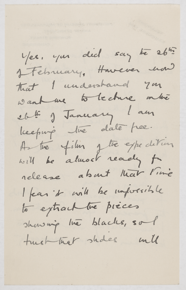 Yes, you did say to 26th
of February. However now
that I understand you
want me to lecture on the
26th of January I am
keeping the date free.
As the film of the expedition
will be almost ready for
release about that time
I fear it will be impossible
to extract the pieces
showing the blacks, so I
trust that slides will